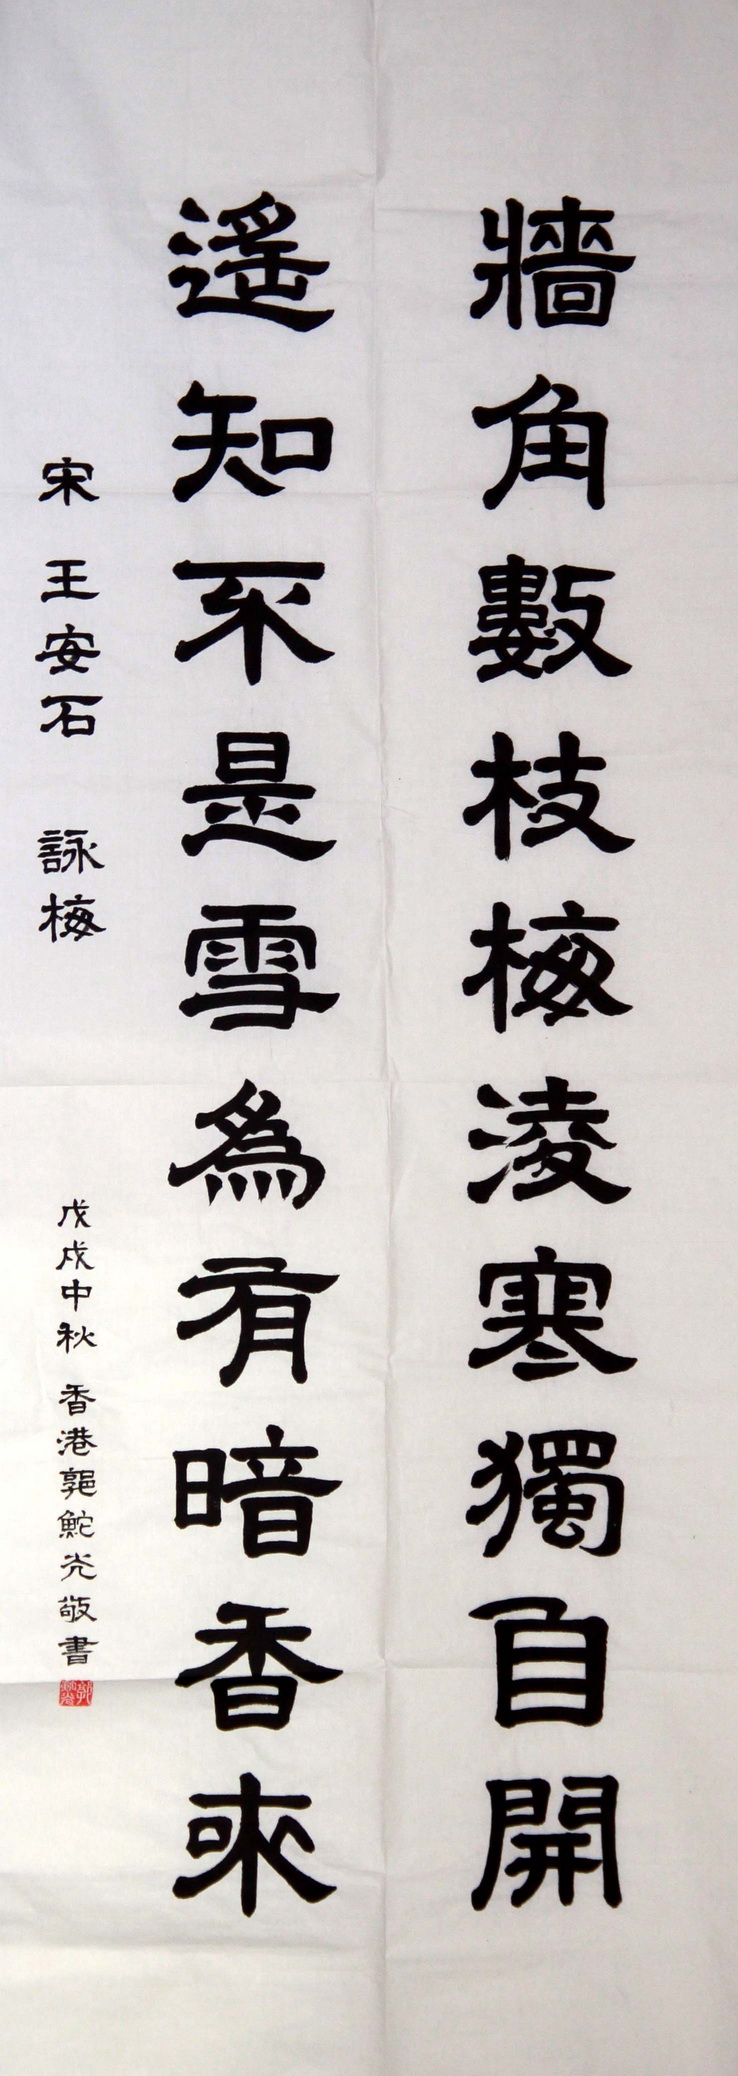 牆角數枝梅淩寒獨自開
遙知不是雪為有暗香來
宋 王安石 詠梅
戊戌中秋 香港郭鮀光敬書